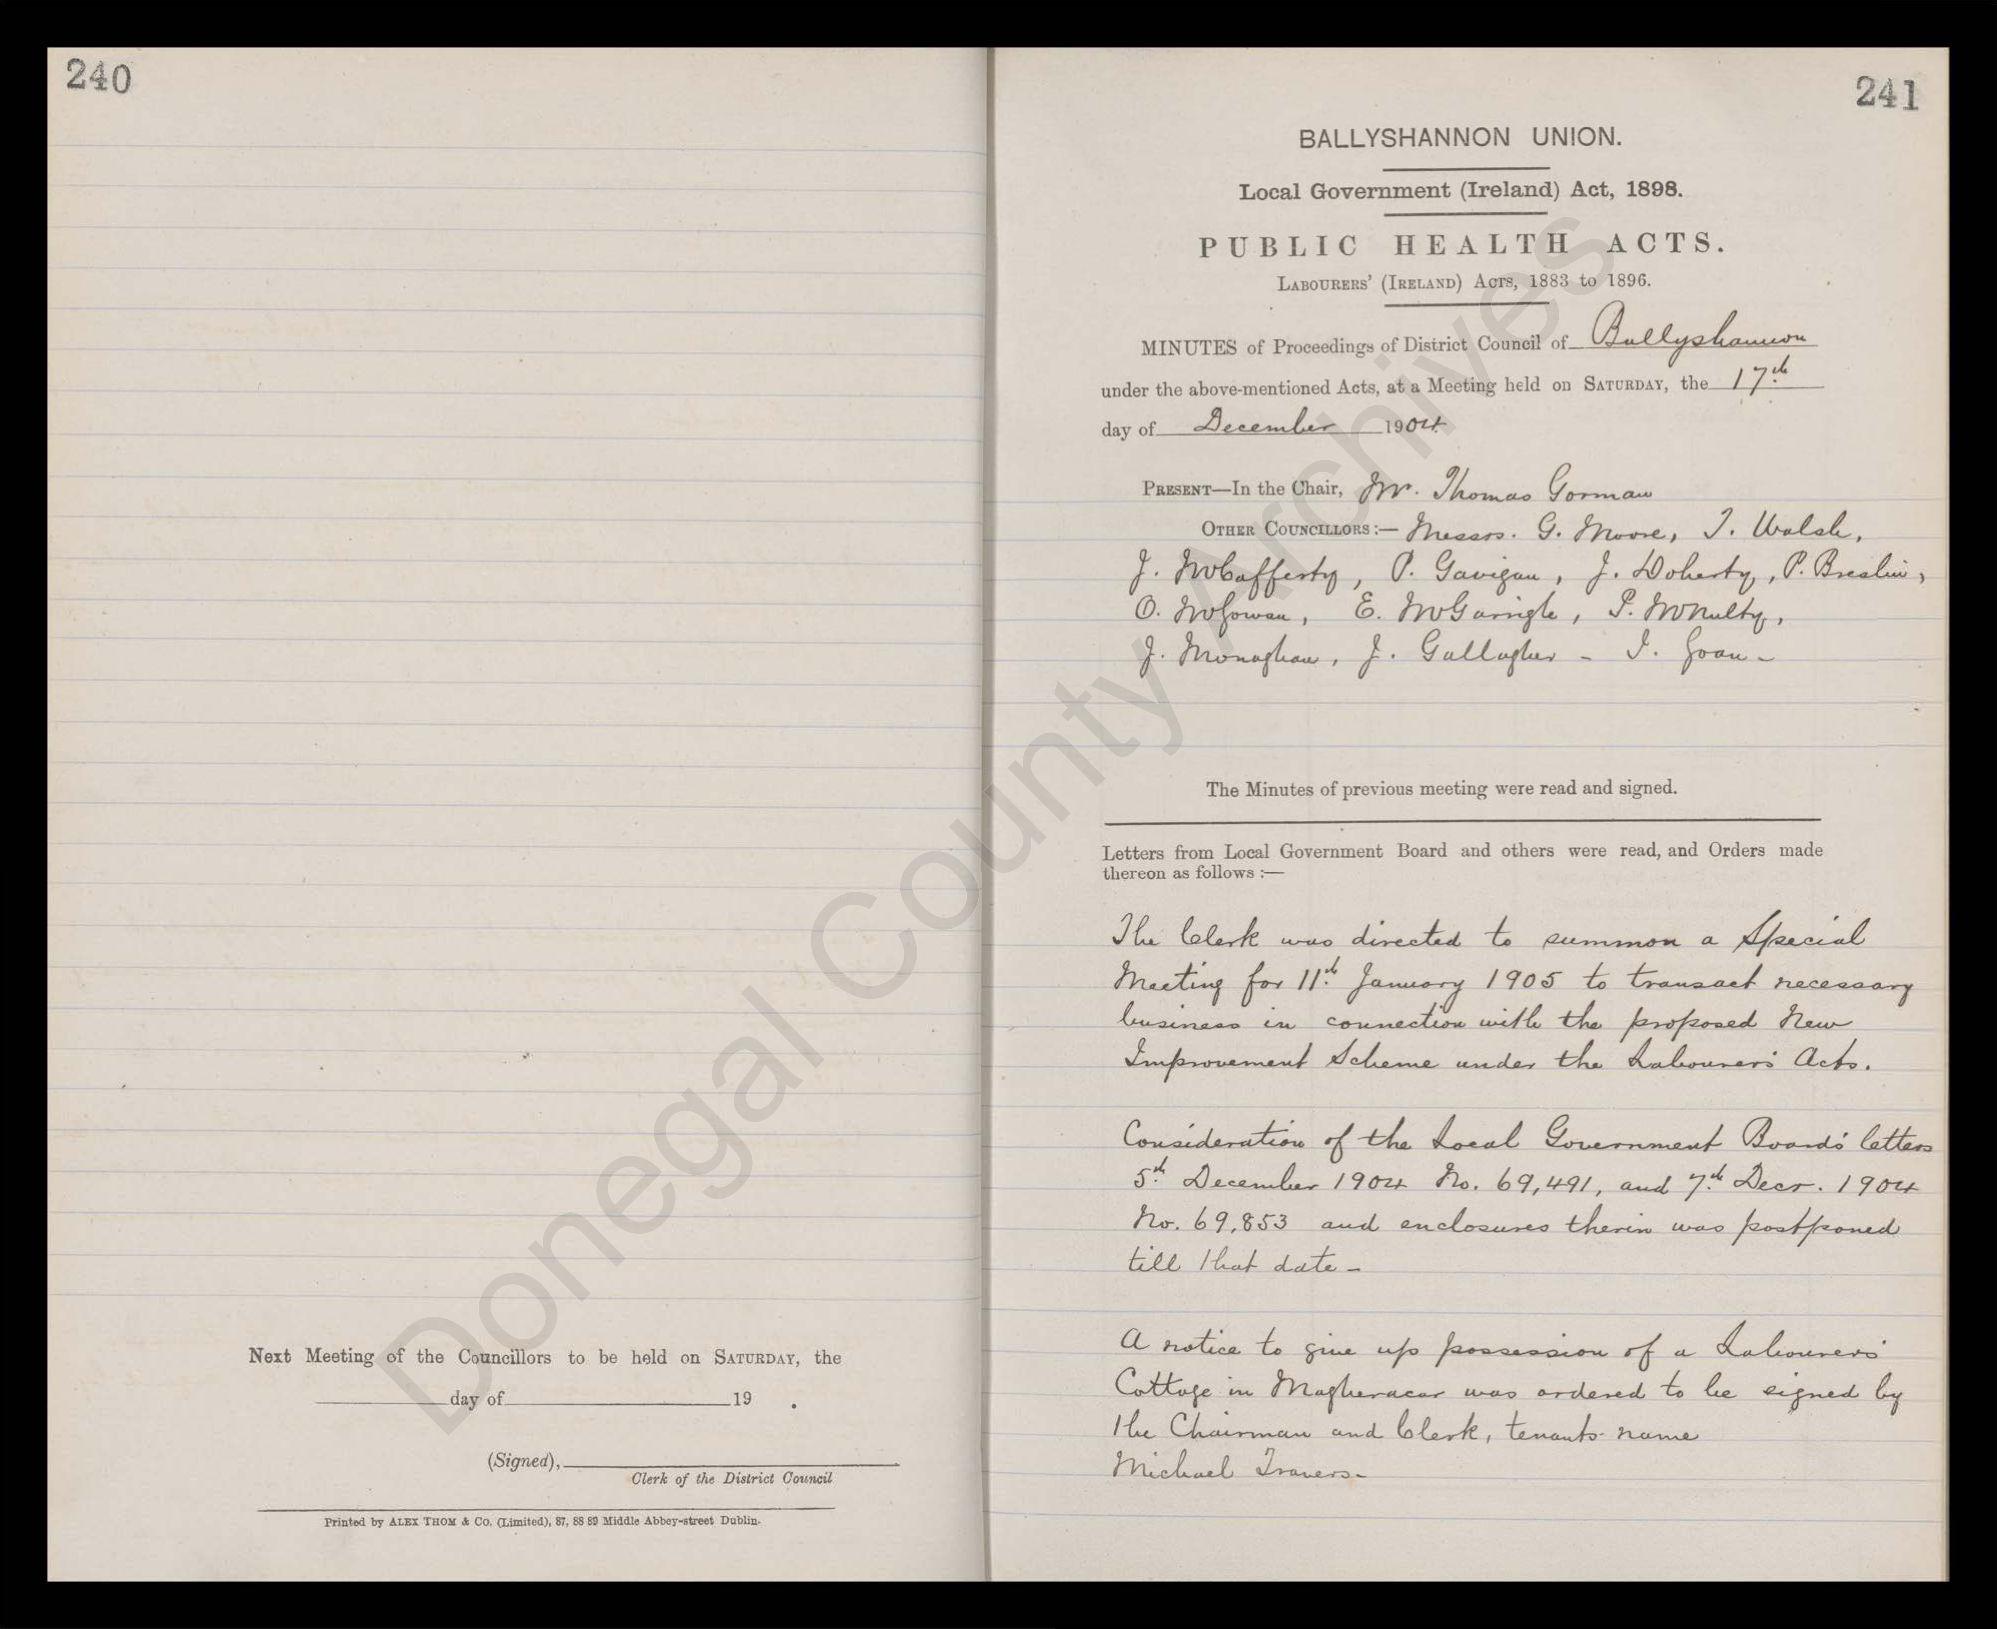 240
Next Meeting of the Councillors to be held on SATURDAY, the
day of 19 .
(Signed),
Clerk of the District Council
Printed by ALEX THOM & Co. (Limited), 87, 88 89 Middle Abbey-street Dublin.
241
BALLYSHANNON UNION.
Local Government (Ireland) Act, 1898.
PUBLIC HEALTH ACTS.
LABOURERS' (IRELAND) ACTS, 1883 to 1896.
MINUTES of Proceedings of District Council of Ballyshannon
under the above-mentioned Acts, at a Meeting held on SATURDAY, the 17th
day of December 1904
PRESENT—In the Chair, Mr. Thomas Gorman
OTHER COUNCILLORS:— Messrs. G. Moore, T. Walsh,
J. McCafferty, P. Gavigan, J. Doherty, P. Breslin,
O. McGowan, E. McGarrigle, P. McNulty,
J. Monaghan, J. Gallagher - T. Goan -
The Minutes of previous meeting were read and signed.
Letters from Local Government Board and others were read, and Orders made
thereon as follows :—
The Clerk was directed to summon a Special
Meeting for 11th January 1905 to transact necessary
business in connection with the proposed New
Improvement Scheme under the Labourers' Acts.
Consideration of the Local Government Board's letters
5th December 1904 No. 69,491, and 7th Decr. 1904
No. 69,853 and enclosures therin was postponed
till that date -
A notice to give up possession of a Labourers'
Cottage in Magheracar was ordered to be signed by
the Chairman and Clerk, tenants name
Michael Travers -
Donegal County Archives